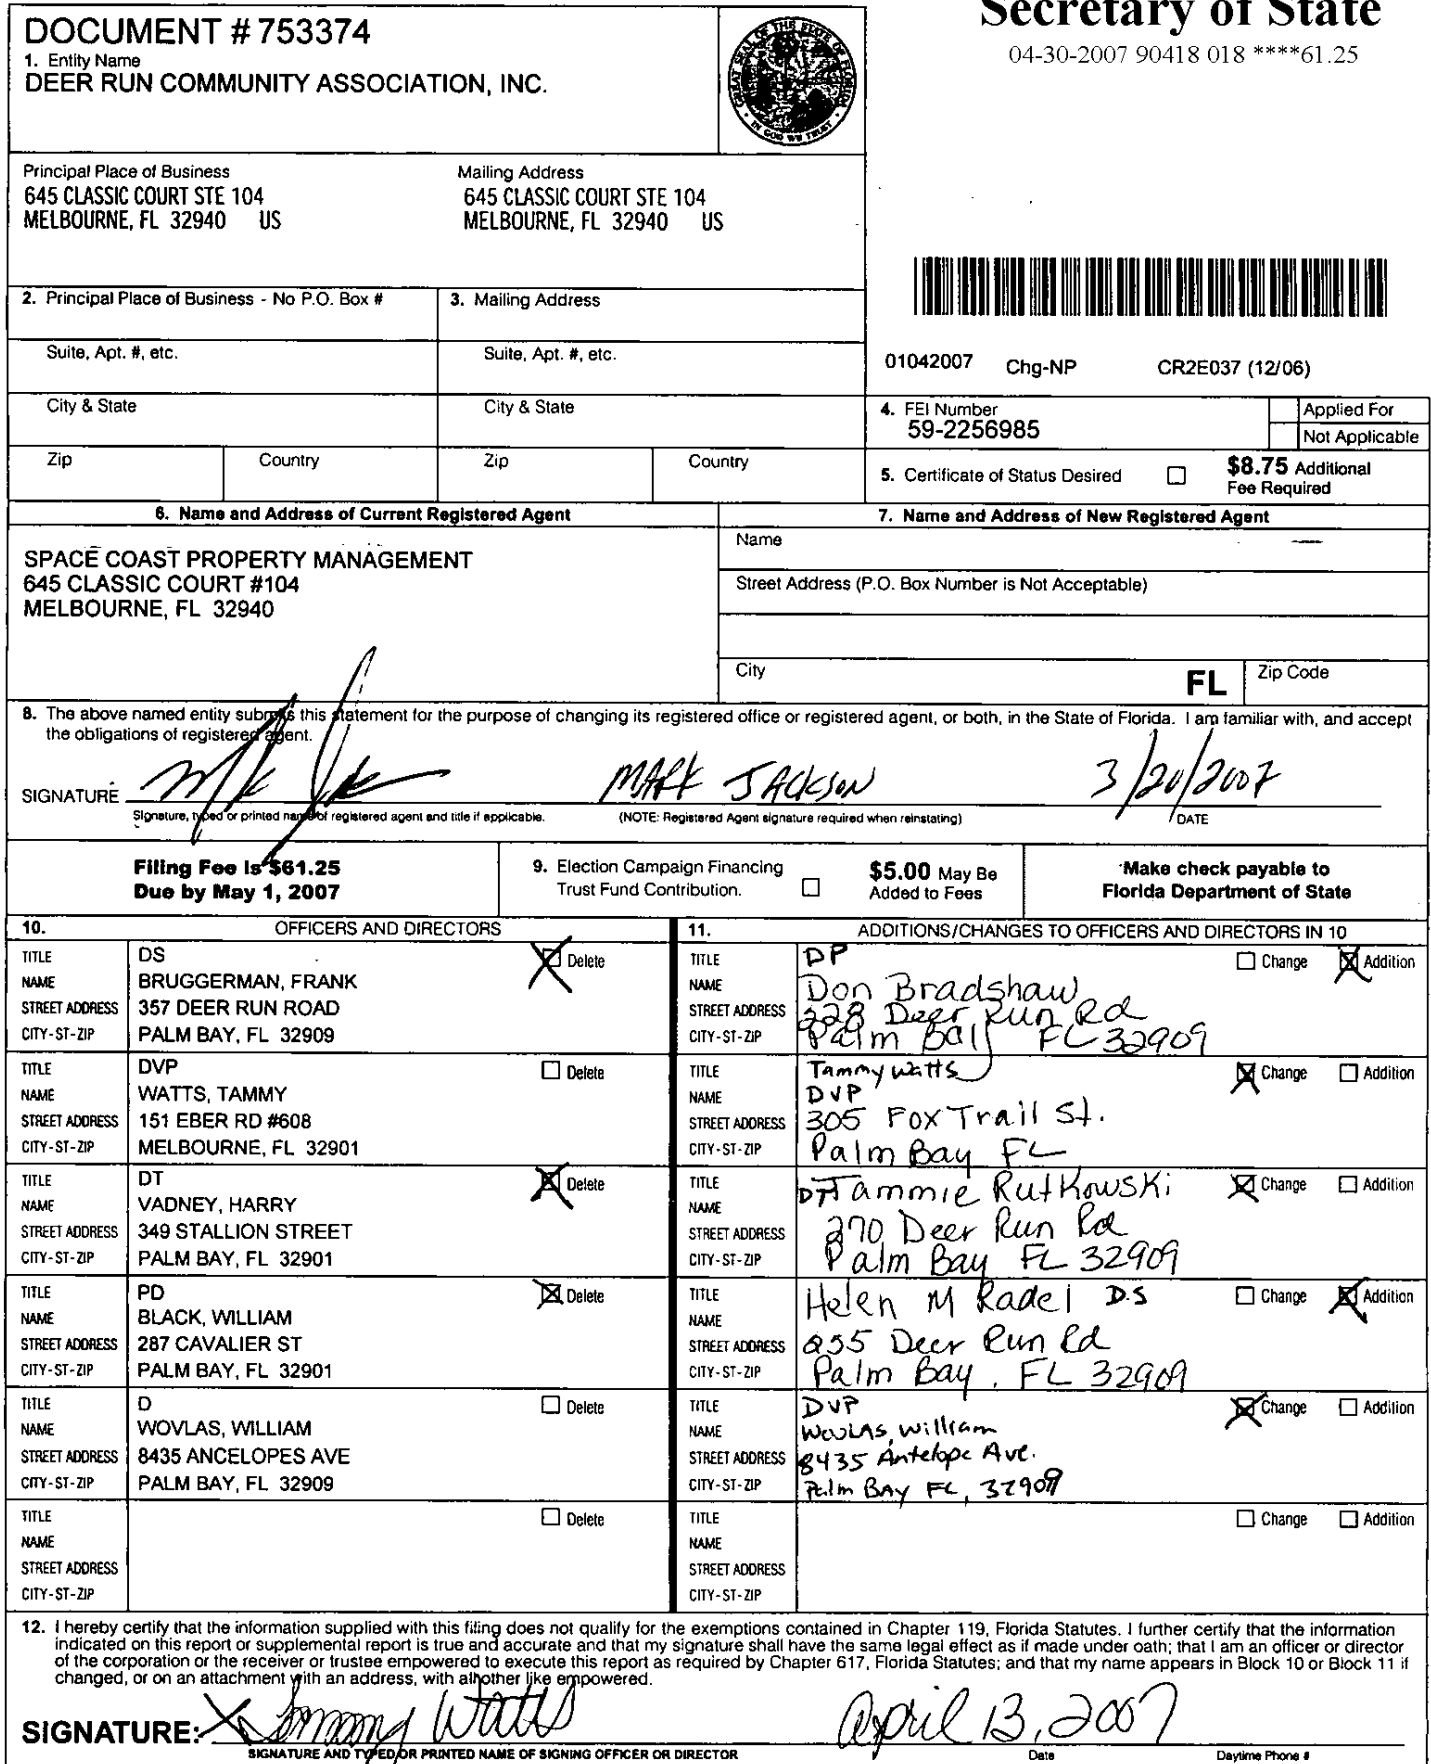 Secretary of State
04-30-2007 90418 018 ****61.25
DOCUMENT # 753374
1. Entity Name
DEER RUN COMMUNITY ASSOCIATION, INC.
GREAT SEAL OF THE STATE OF FLORIDA
IN GOD WE TRUST
Principal Place of Business
645 CLASSIC COURT STE 104
MELBOURNE, FL 32940 US
Mailing Address
645 CLASSIC COURT STE 104
MELBOURNE, FL 32940 US
2. Principal Place of Business - No P.O. Box #
3. Mailing Address
Suite, Apt. #, etc.
Suite, Apt. #, etc.
City & State
City & State
Zip
Country
Zip
Country
01042007 Chg-NP CR2E037 (12/06)
4. FEI Number
59-2256985
Applied For
Not Applicable
5. Certificate of Status Desired
$8.75 Additional
Fee Required
6. Name and Address of Current Registered Agent
SPACE COAST PROPERTY MANAGEMENT
645 CLASSIC COURT #104
MELBOURNE, FL 32940
7. Name and Address of New Registered Agent
Name
Street Address (P.O. Box Number is Not Acceptable)
City
FL
Zip Code
8. The above named entity submits this statement for the purpose of changing its registered office or registered agent, or both, in the State of Florida. I am familiar with, and accept
the obligations of registered agent.
SIGNATURE
MARK JACKSON
3/20/2007
Signature, typed or printed name of registered agent and title if applicable.
(NOTE: Registered Agent signature required when reinstating)
DATE
Filing Fee is $61.25
Due by May 1, 2007
9. Election Campaign Financing
Trust Fund Contribution.
$5.00 May Be
Added to Fees
Make check payable to
Florida Department of State
10. OFFICERS AND DIRECTORS
TITLE DS Delete
NAME BRUGGERMAN, FRANK
STREET ADDRESS 357 DEER RUN ROAD
CITY-ST-ZIP PALM BAY, FL 32909
TITLE DVP Delete
NAME WATTS, TAMMY
STREET ADDRESS 151 EBER RD #608
CITY-ST-ZIP MELBOURNE, FL 32901
TITLE DT Delete
NAME VADNEY, HARRY
STREET ADDRESS 349 STALLION STREET
CITY-ST-ZIP PALM BAY, FL 32901
TITLE PD Delete
NAME BLACK, WILLIAM
STREET ADDRESS 287 CAVALIER ST
CITY-ST-ZIP PALM BAY, FL 32901
TITLE D Delete
NAME WOVLAS, WILLIAM
STREET ADDRESS 8435 ANCELOPES AVE
CITY-ST-ZIP PALM BAY, FL 32909
TITLE Delete
NAME
STREET ADDRESS
CITY-ST-ZIP
11. ADDITIONS/CHANGES TO OFFICERS AND DIRECTORS IN 10
TITLE DP Change Addition
NAME Don Bradshaw
STREET ADDRESS 228 Deer Run Rd
CITY-ST-ZIP Palm Bay FL 32909
TITLE Tammy Watts Change Addition
NAME DVP
STREET ADDRESS 305 Fox Trail St.
CITY-ST-ZIP Palm Bay FL
TITLE DT Tammie Rutkowski Change Addition
NAME
STREET ADDRESS 270 Deer Run Rd
CITY-ST-ZIP Palm Bay FL 32909
TITLE Helen M Radel D.S Change Addition
NAME
STREET ADDRESS 255 Deer Run Rd
CITY-ST-ZIP Palm Bay, FL 32909
TITLE DVP Change Addition
NAME Wovlas, William
STREET ADDRESS 8435 Antelope Ave.
CITY-ST-ZIP Palm Bay FL, 32909
TITLE Change Addition
NAME
STREET ADDRESS
CITY-ST-ZIP
12. I hereby certify that the information supplied with this filing does not qualify for the exemptions contained in Chapter 119, Florida Statutes. I further certify that the information
indicated on this report or supplemental report is true and accurate and that my signature shall have the same legal effect as if made under oath; that I am an officer or director
of the corporation or the receiver or trustee empowered to execute this report as required by Chapter 617, Florida Statutes; and that my name appears in Block 10 or Block 11 if
changed, or on an attachment with an address, with all other like empowered.
SIGNATURE: Tammy Watts April 13, 2007
SIGNATURE AND TYPED OR PRINTED NAME OF SIGNING OFFICER OR DIRECTOR
Date
Daytime Phone #